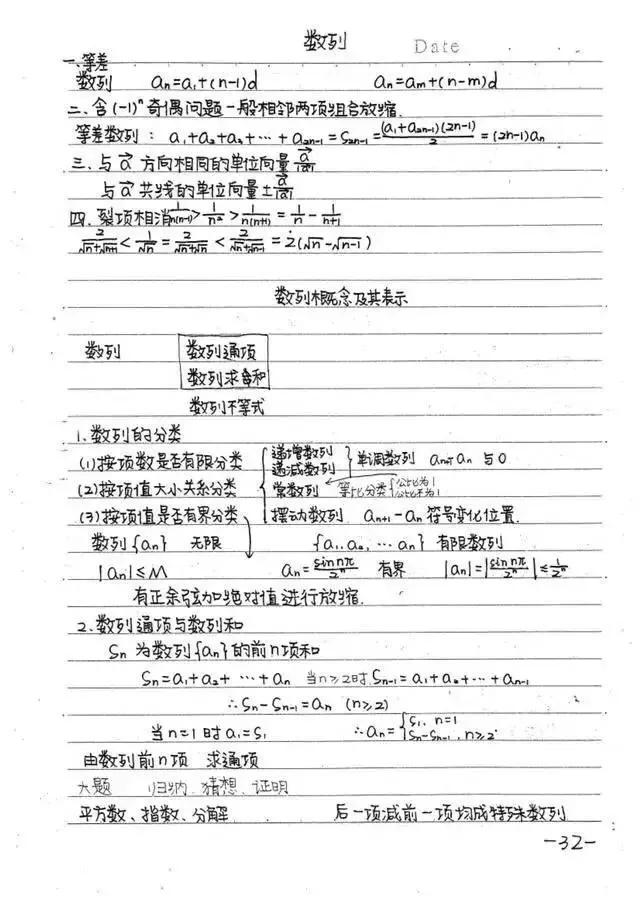 数列 Date
一、等差
数列 aₙ=a₁+(n-1)d aₙ=aₘ+(n-m)d
二、含(-1)ⁿ奇偶问题一般相邻两项组合放缩.
等差数列：a₁+a₂+a₃+…+a₂ₙ₋₁=S₂ₙ₋₁=(a₁+a₂ₙ₋₁)(2n-1)/2=(2n-1)aₙ
三、与a⃗方向相同的单位向量 a⃗/|a⃗|
与a⃗共线的单位向量±a⃗/|a⃗|
四、裂项相消 1/n(n-1)>1/n²>1/n(n+1)=1/n-1/(n+1)
2/(√n+√(n+1))<1/√n=2/(√n+√n)<2/(√n+√(n-1))=2(√n-√(n-1))
数列概念及其表示
数列 数列通项
数列求和
数列不等式
1.数列的分类
(1)按项数是否有限分类 递增数列
递减数列 单调数列 aₙ₊₁ aₙ 与0
(2)按项值大小关系分类 常数列 等比分类{公比为1
公比不为1
(3)按项值是否有界分类 摆动数列 aₙ₊₁-aₙ符号变化位置.
数列{aₙ} 无限 {a₁.a₂,…aₙ}有限数列
|aₙ|≤M aₙ=sin nπ/2ⁿ 有界 |aₙ|=|sin nπ/2ⁿ|≤1/2ⁿ
有正余弦加绝对值进行放缩.
2.数列通项与数列和
Sₙ为数列{aₙ}的前n项和
Sₙ=a₁+a₂+…+aₙ 当n≥2时.Sₙ₋₁=a₁+a₂+…+aₙ₋₁
∴Sₙ-Sₙ₋₁=aₙ (n≥2)
当n=1时a₁=S₁ ∴aₙ={S₁, n=1
Sₙ-Sₙ₋₁, n≥2
由数列前n项 求通项
大题 归纳.猜想.证明
平方数、指数、分解 后一项减前一项均成特殊数列
-32-